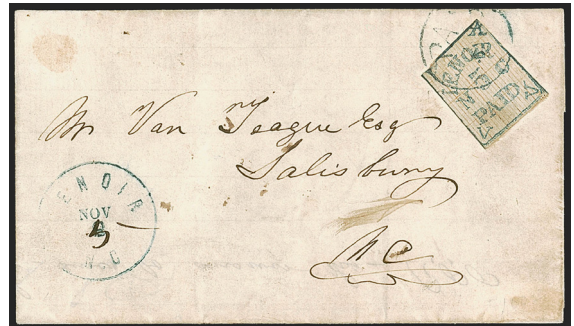 PAID
LENOIR
N C
PAID
Mr Van Teague Esq
Salisbury
N C
LENOIR
NOV
2
5
N C